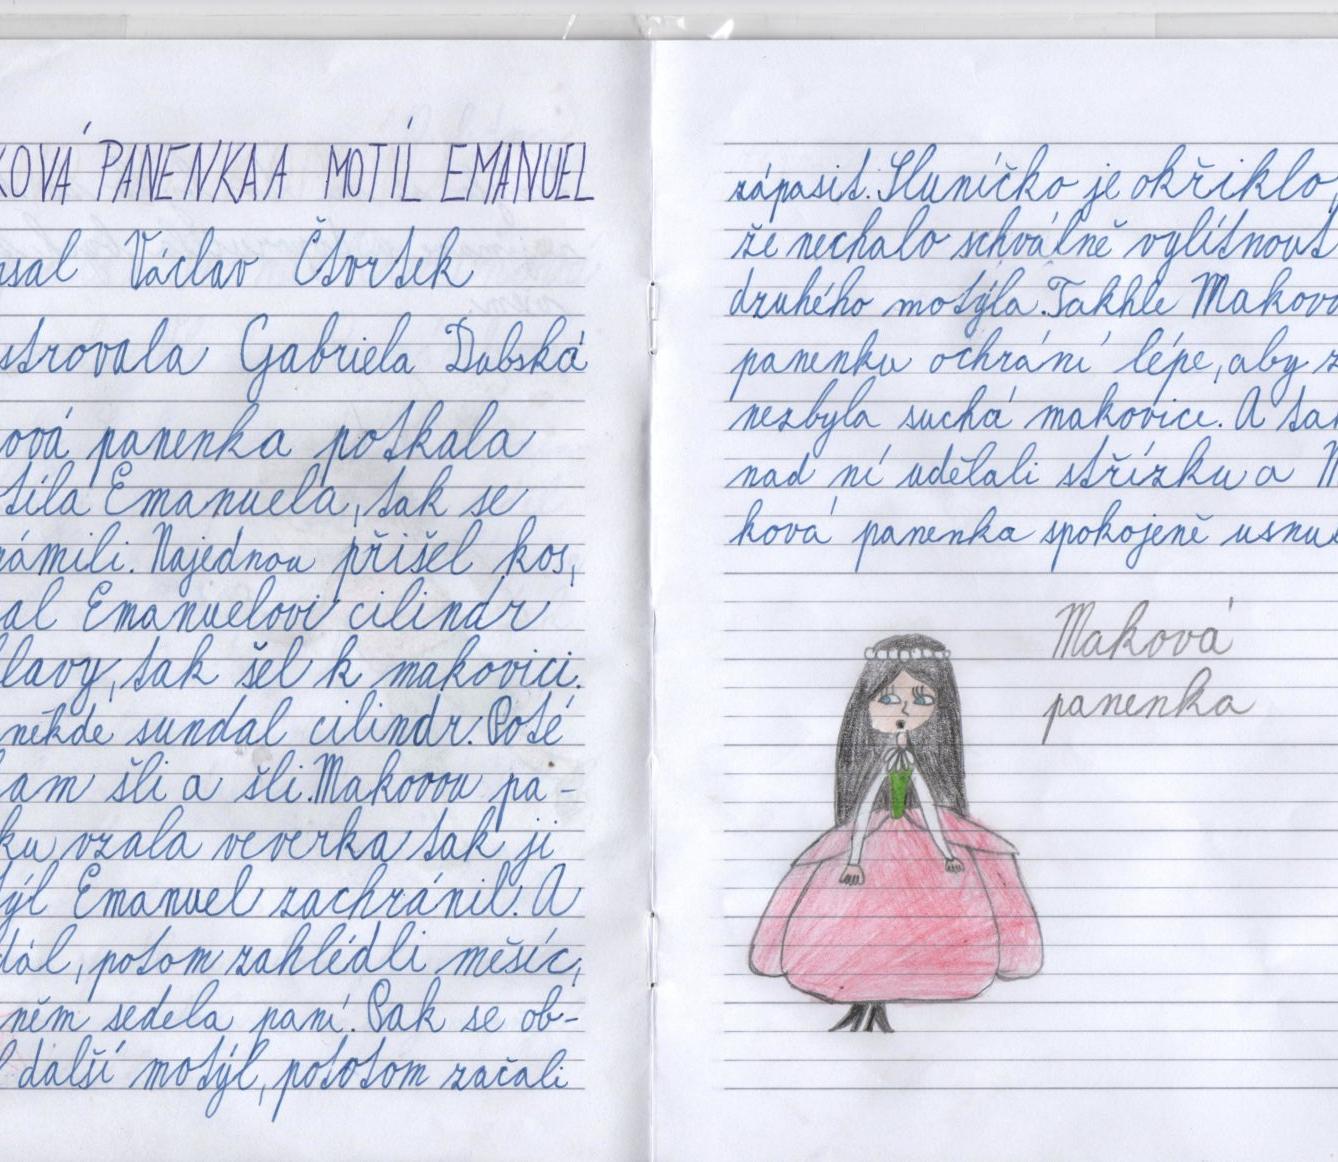 KOVÁ PANENKA A MOTÍL EMANUEL
psal Václav Čtvrtek
strovala Gabriela Dubská
ová panenka potkala
tíla Emanuela, tak se
námili. Najednou přišel kos,
al Emanuelovi cilindr
lavy, tak šel k makovici.
někde sundal cilindr. Poté
am šli a šli. Makovou pa-
ku vzala veverka tak ji
ýl Emanuel zachránil. A
dál, potom zahlédli měsíc,
něm sedela paní. Pak se ob-
l další motýl, pototom začali
zápasit. Sluníčko je okřiklo,
že nechalo schválně vylítnout
druhého motýla. Takhle Makovo
panenku ochrání lépe, aby z
nezbyla suchá makovice. A tak
nad ní udělali střízku a M
ková panenka spokojeně usnu
Maková
panenka